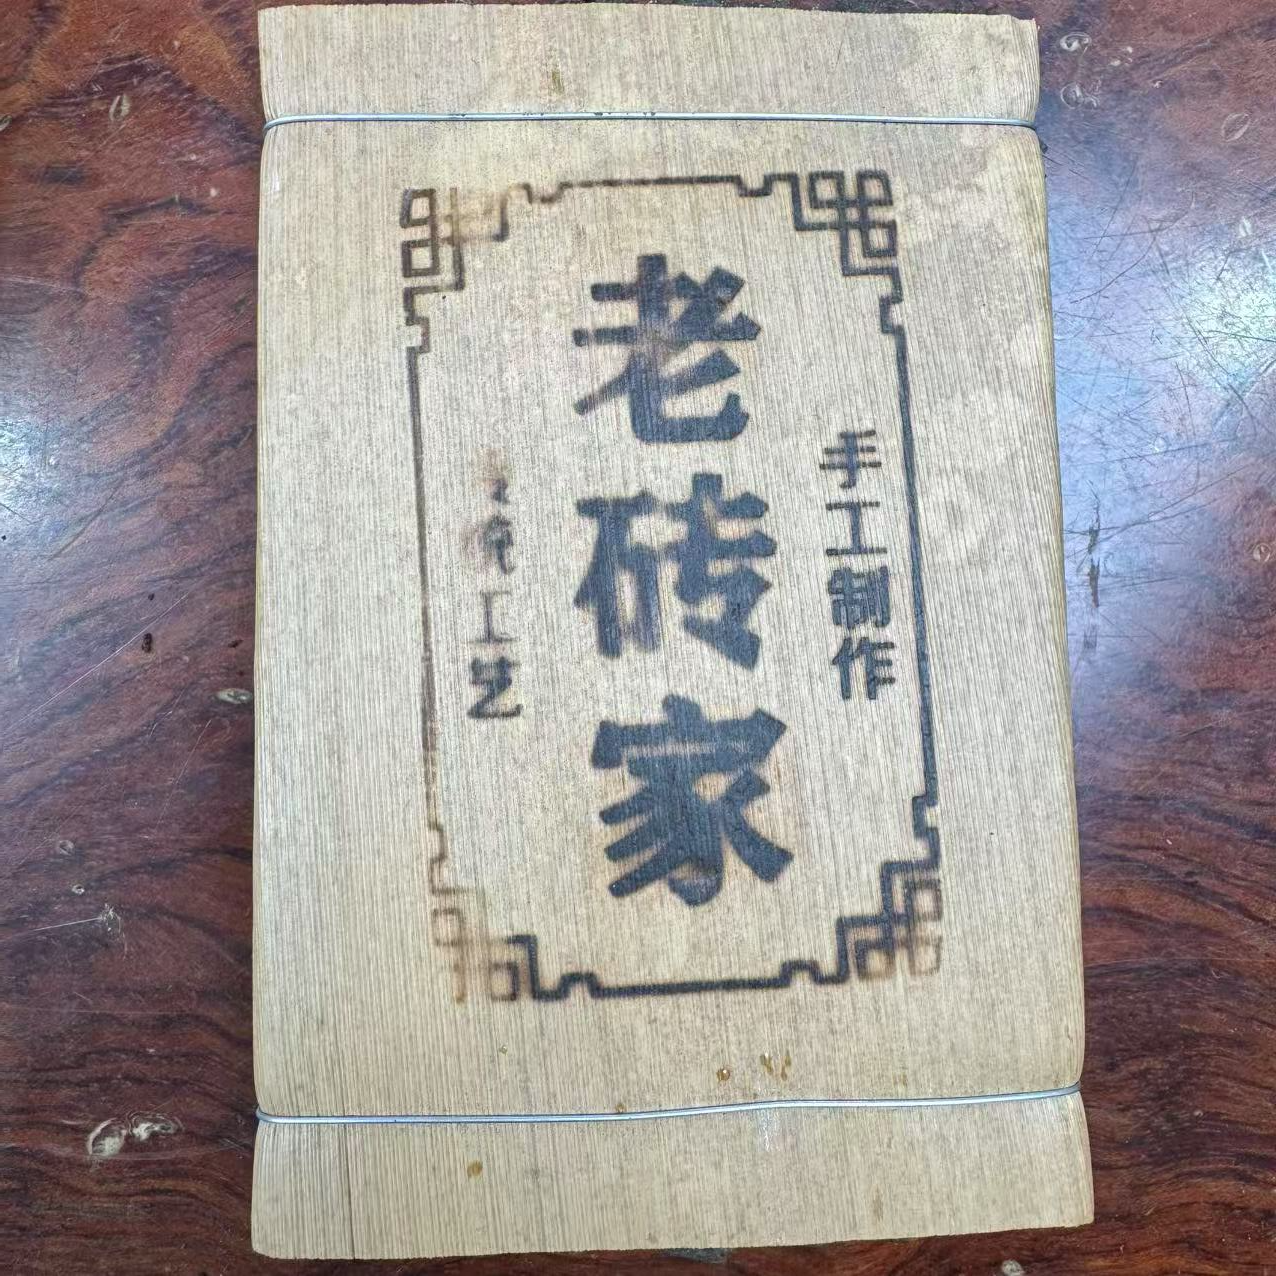 手工制作
老砖家
工艺